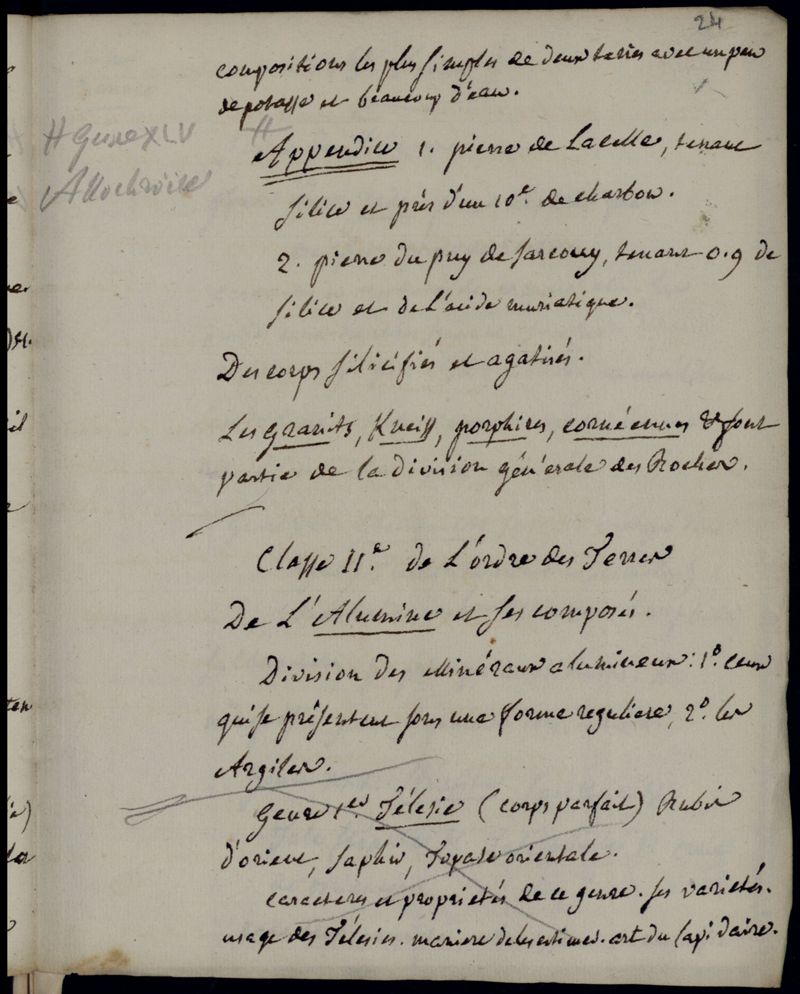 24
compositions les plus simples de deux terres avec un peu
de potasse et beaucoup d'eau.
# Genre XLV #
Allochroite
Appendice 1. pierre de Lacelle, tenant
silice et près d'un 10e. de charbon.
2. pierre du puy de Sarcouy, tenant 0.9 de
silice et de l'acide muriatique.
Des corps silicifiés et agatisés.
Les granits, Kneiss, porphires, cornéennes & font
partie de la division générale des Roches.
Classe IIe. de L'ordre des Terres
De L'Alumine et ses composés.
Division des Minéraux alumineux: 1°. ceux
qui se présentent sous une forme reguliere, 2°. les
Argiles.
Genre 1er Télésie (corps parfait) Rubis
d'orient, saphir, Topase orientale.
caracteres et proprietés de ce genre. ses varietés.
usage des Télésies. maniere de les estimer. art du lapidaire.